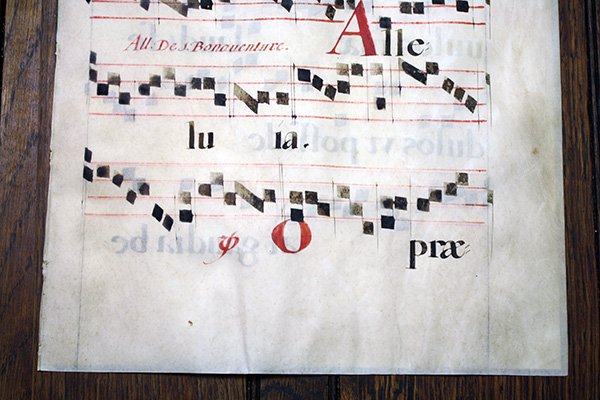 All. De s. Bonaventure. Alle=
lu ia.
℣ O præ=